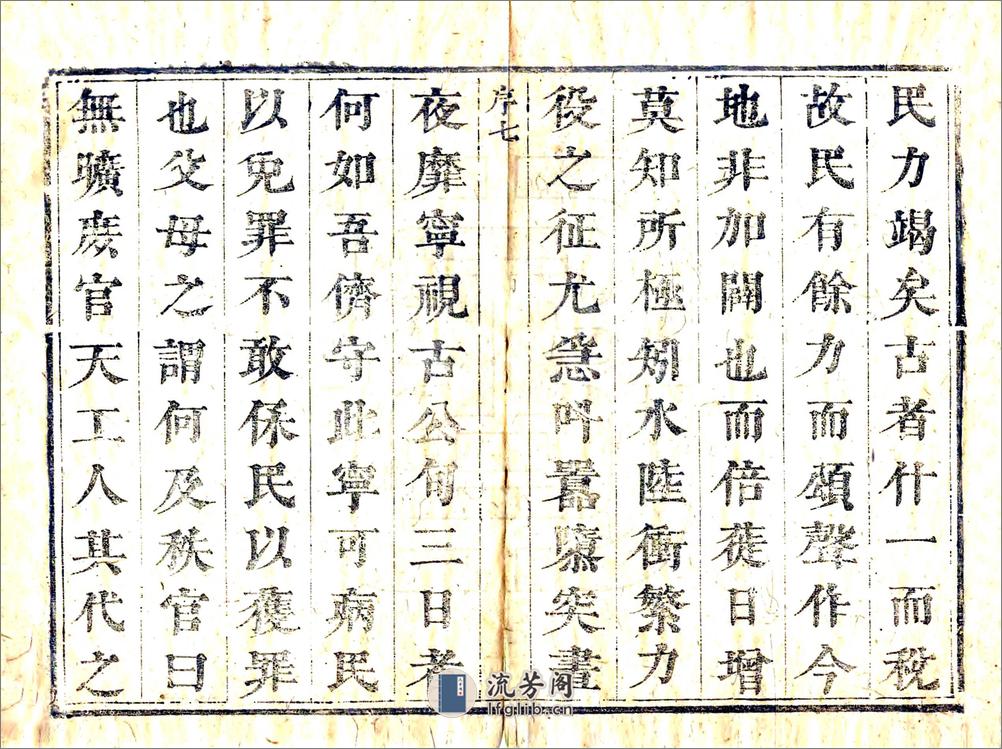 民力竭矣古者什一而稅
故民有餘力而頌聲作今
地非加闢也而倍蓰日增
莫知所極矧水陸衝繁力
役之征尤急叫囂隳突晝
序七
夜靡寧視古公旬三日者
何如吾儕守此寧可病民
以免罪不敢係民以獲罪
也父母之謂何及秩官曰
無曠庶官天工人其代之
流芳阁
lfglib.cn